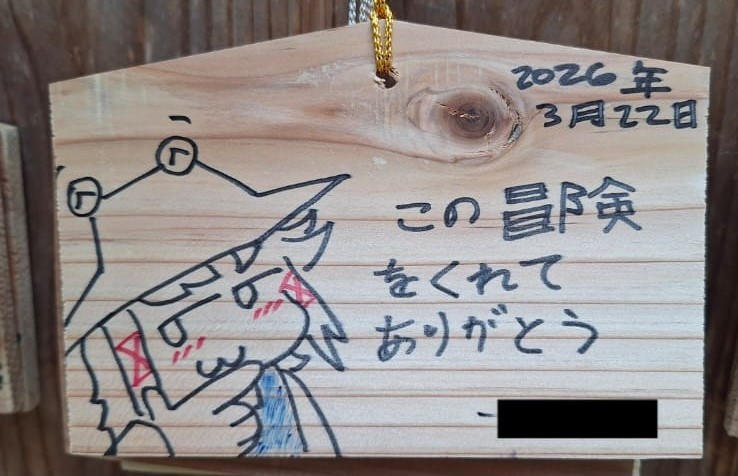 2026年
3月22日
この冒険
をくれて
ありがとう